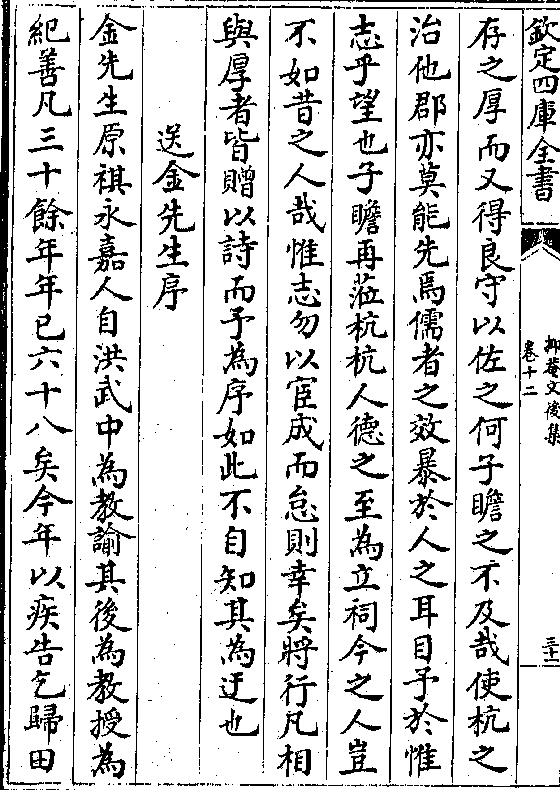 欽定四庫全書
抑菴文後集
卷十二
三十二
存之厚而又得良守以佐之何子瞻之不及哉使杭之
治他郡亦莫能先焉儒者之效暴於人之耳目予於惟
志乎望也子瞻再蒞杭杭人德之至為立祠今之人豈
不如昔之人哉惟志勿以宦成而怠則幸矣將行凡相
與厚者皆贈以詩而予為序如此不自知其為迂也
送金先生序
金先生原祺永嘉人自洪武中為教諭其後為教授為
紀善凡三十餘年年已六十八矣今年以疾告乞歸田